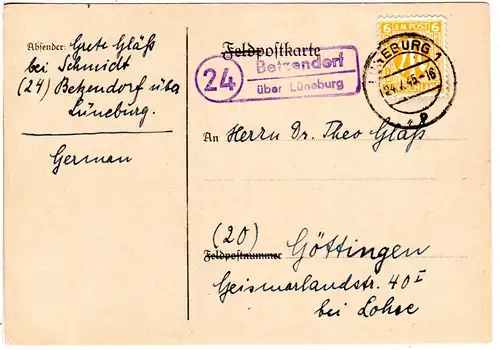 Absender: Grete Gläß
bei Schmidt
(24) Betzendorf über
Lüneburg.
German
Feldpostkarte
24
Betzendorf
über Lüneburg
6 AM POST 6
LÜNEBURG 1
24.7.45-16
An Herrn Dr. Theo Gläß
(20)
Feldpostnummer Göttingen
Geismarlandstr. 40 I
bei Lohse